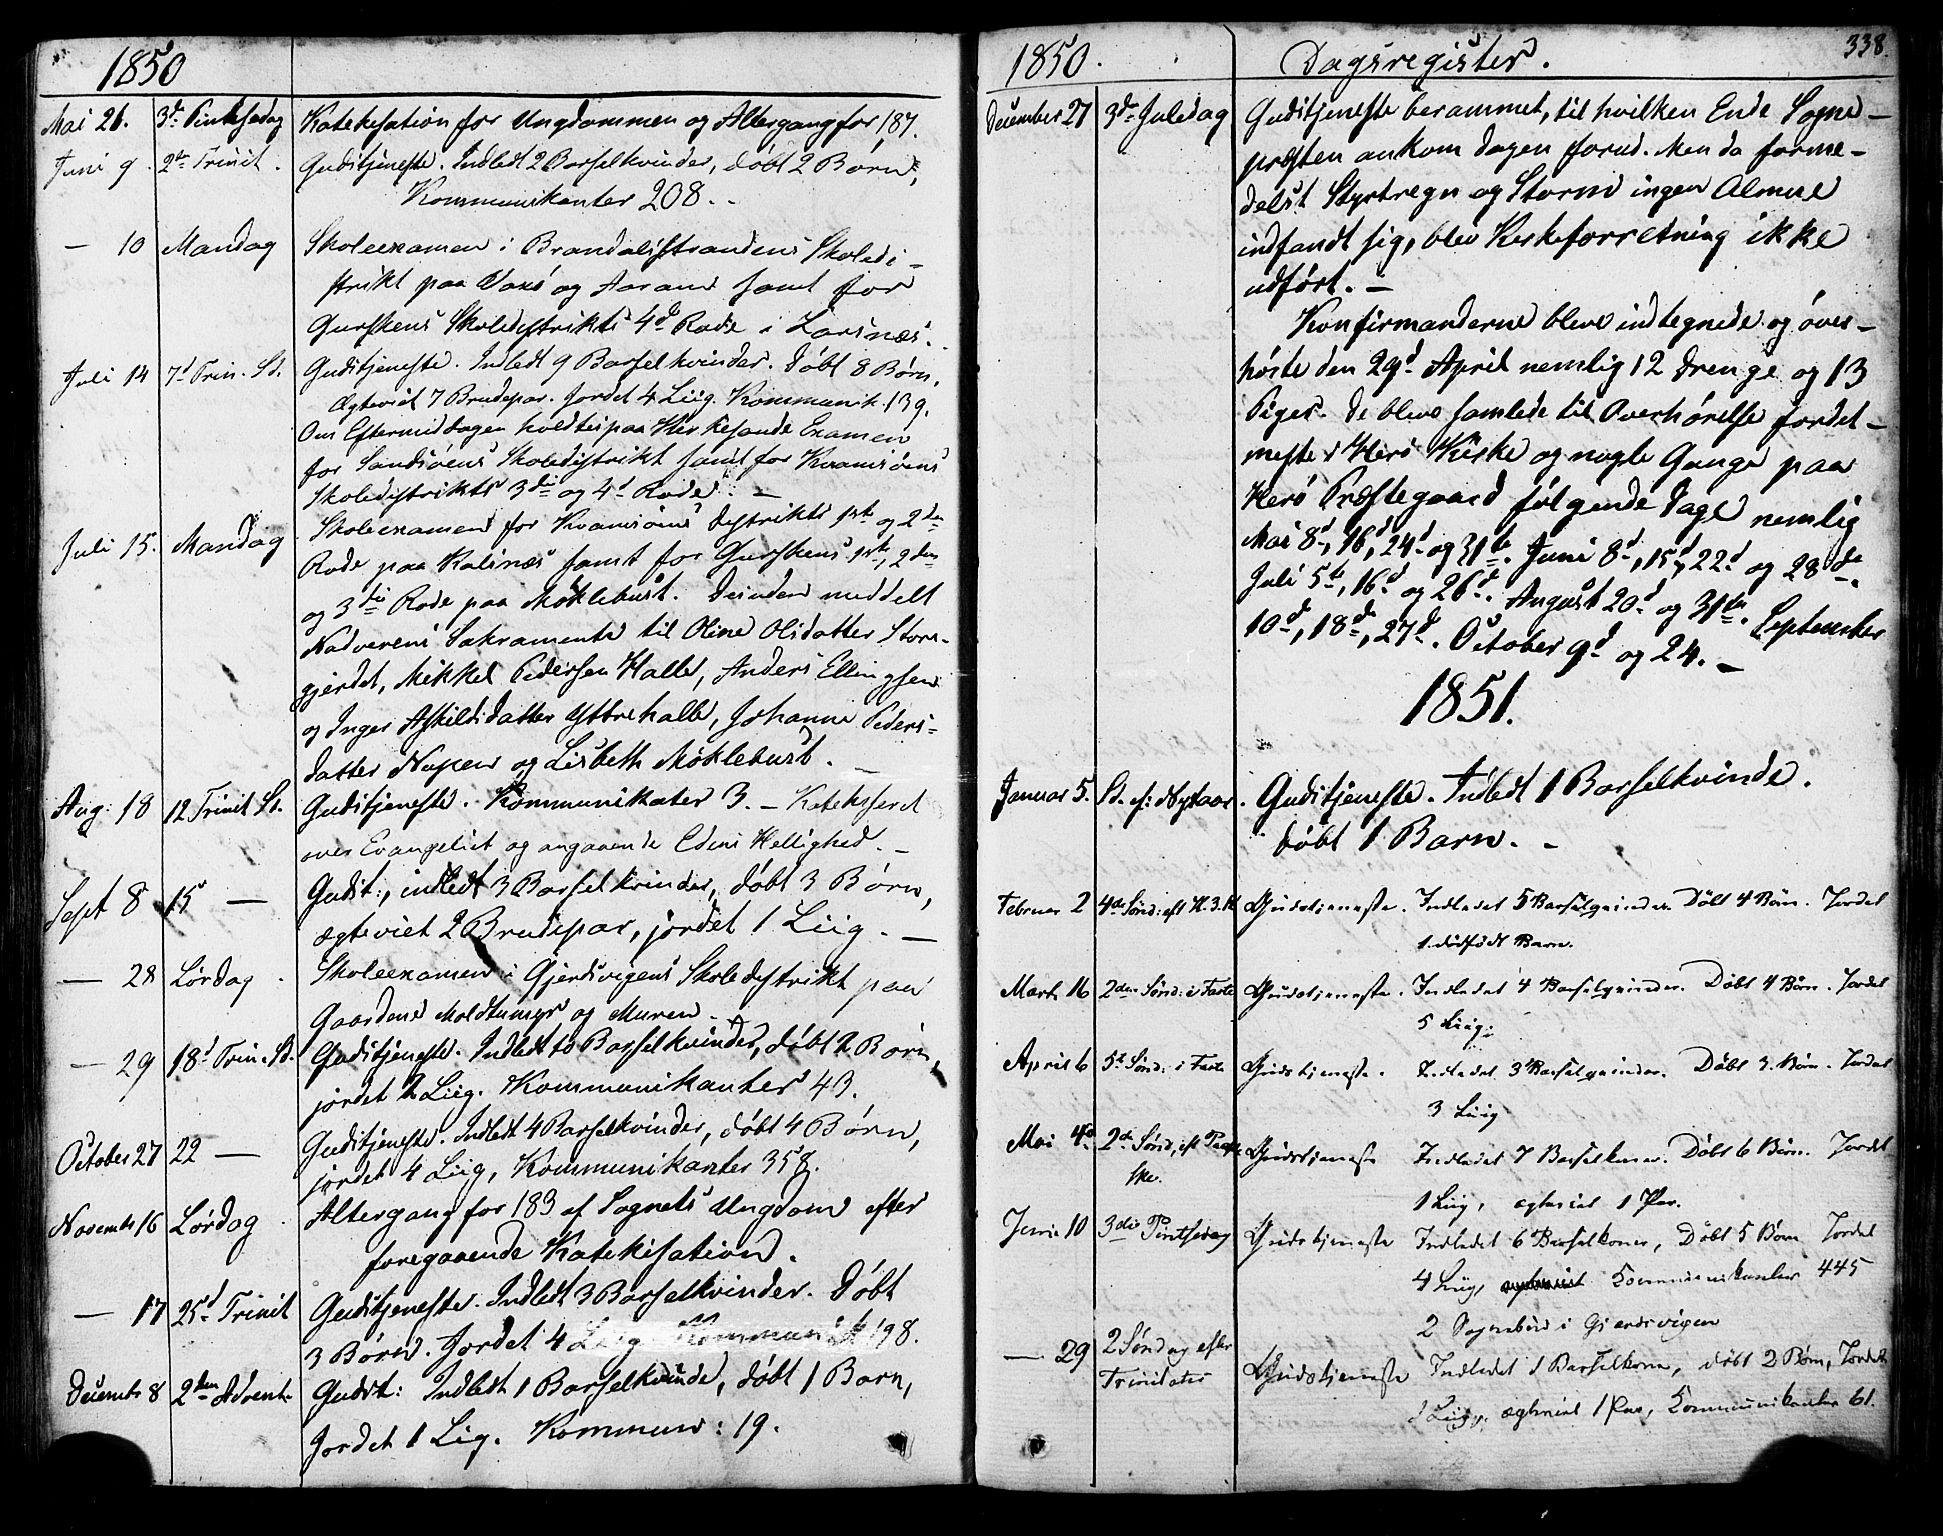 1850
Mai 21. 3de Pintsedag Katekisation for Ungdommen og Altergang for 187.
Juni 9. 2de Trinit. Gudstjeneste. Indledt 2 Barselkvinder, døbt 2 Børn,
Kommunikanter 208. -
— 10 Mandag Skoleexamen i Brandalsstrandens Skoledi-
strikt paa Voxø og Aaram samt for
Gurskens Skoledistrikts 4d Rode i Larsnæs.
Juli 14 7d Trin. Sd. Gudstjeneste. Indledt 9 Barselkvinder. Døbt 8 Børn,
Ægteviet 7 Brudepar. Jordet 4 Liig. Kommunik. 139.
Om Eftermiddagen holdtes paa Kirkesande Examen
for Sandsøens Skoledistrikt samt for Kvamsøens
Skoledistrikts 3die og 4d Rode. —
Juli 15. Mandag Skoleexamen for Kvamsøens Distrikts 1ste og 2den
Rode paa Kalsnæs samt for Gurskens 1ste, 2den
og 3die Rode paa Møklebust. Desuden meddelt
Nadverens Sakramente til Oline Olsdatter Store-
gjerdet, Mikkel Pedersen Halle, Anders Ellingsen
og Inger Askildsdatter Yttrehalle, Johanne Peders-
datter Nupen og Lisbeth Møklebust. —
Aug: 18 12 Trinit Sd. Gudstjeneste. Kommunikater 3. — Katekiseret
over Evangeliet og angaaende Edens Hellighed. —
Sept 8 15 — Gudst:, indledt 3 Barselkvinder, døbt 3 Børn,
ægteviet 2 Brudepar, jordet 1 Liig. —
— 28 Lørdag. Skoleexamen i Gjerdsvigens Skoledistrikt paa
Gaardene Moldtumyr og Muren. —
— 29 18d Trin. Sd. Gudstjeneste. Indledt 10 Barselkvinder, døbt 2 Børn,
jordet 2 Liig. Kommunikanter 43.
October 27 22 — Gudstjeneste. Indledt 4 Barselkvinder, døbt 4 Børn,
jordet 4 Liig, Kommunikanter 358.
Novembr 16 Lørdag. Altergang for 183 af Sognets Ungdom efter
foregaaende Katekisation.
— 17 25d Trinit Gudstjeneste. Indledt 3 Barselkvinder. Døbt
3 Børn. Jordet 4 Liig Kommunik 198.
Decembr 8 2den Advent Gudst: Indledt 1 Barselkvinde, døbt 1 Barn,
Jordet 1 Lig. Kommun: 19.
1850. Dagsregister. 338
December 27 3de Juledag Gudstjeneste berammet, til hvilken Ende Sogne-
præsten ankom Dagen forud. Men da forme-
delst Styrtregn og Storm ingen Almue
indfandt sig, blev Kirkeforretning ikke
udført. —
Konfirmanderne bleve indtegnede og over-
hørte den 29d April nemlig 12 Drenge og 13
Piger. De bleve samlede til Overhørelse fordet-
meste i Herø Kirke og nogle Gange paa
Herø Præstegaard følgende Dage nemlig
Mai 8d, 16d, 24d og 31te. Juni 8d, 15d, 22d og 28de.
Juli 5te, 16d og 26d. August 20d og 31te. September
10d, 18de, 27d. October 9d og 24. —
1851.
Januar 5. Sd. ef: Nytaar. Gudstjeneste. Indledt 1 Barselkvinde.
døbt 1 Barn. -
Februar 2 4de Sønd: eft H. 3. K. Gudstjeneste. Indledet 5 Barselqvinder. Døbt 4 Børn. Jordet
1 dødfødt Barn.
Marts 16 2den Sønd: i Faste Gudstjeneste. Indledet 4 Barselqvinder. Døbt 4 Børn. Jordet
5 Liig.
April 6 5te Sønd: i Faste Gudstjeneste. Indledet 3 Barselqvinder. Døbt 3 Børn. Jordet
3 Liig
Mai 4de 2de Sønd, eft Paa-
ske. Gudstjeneste Indledet 7 Barselkoner. Døbt 6 Børn. Jordet
1 Liig, ægteviet 1 Par.
Juni 10 3die Pintsedag Gudstjeneste Indledet 6 Barselkoner, Døbt 5 Børn Jordet
4 Liig, ægteviet Communikanter 445
2 Sognebud i Gjerdsvigen
— 29 2 Søndag efter
Trinitatis Gudstjeneste Indledet 1 Barselkone, døbt 2 Børn, Jordet
2 Liig, ægteviet 1 Par, Communikanter 61.